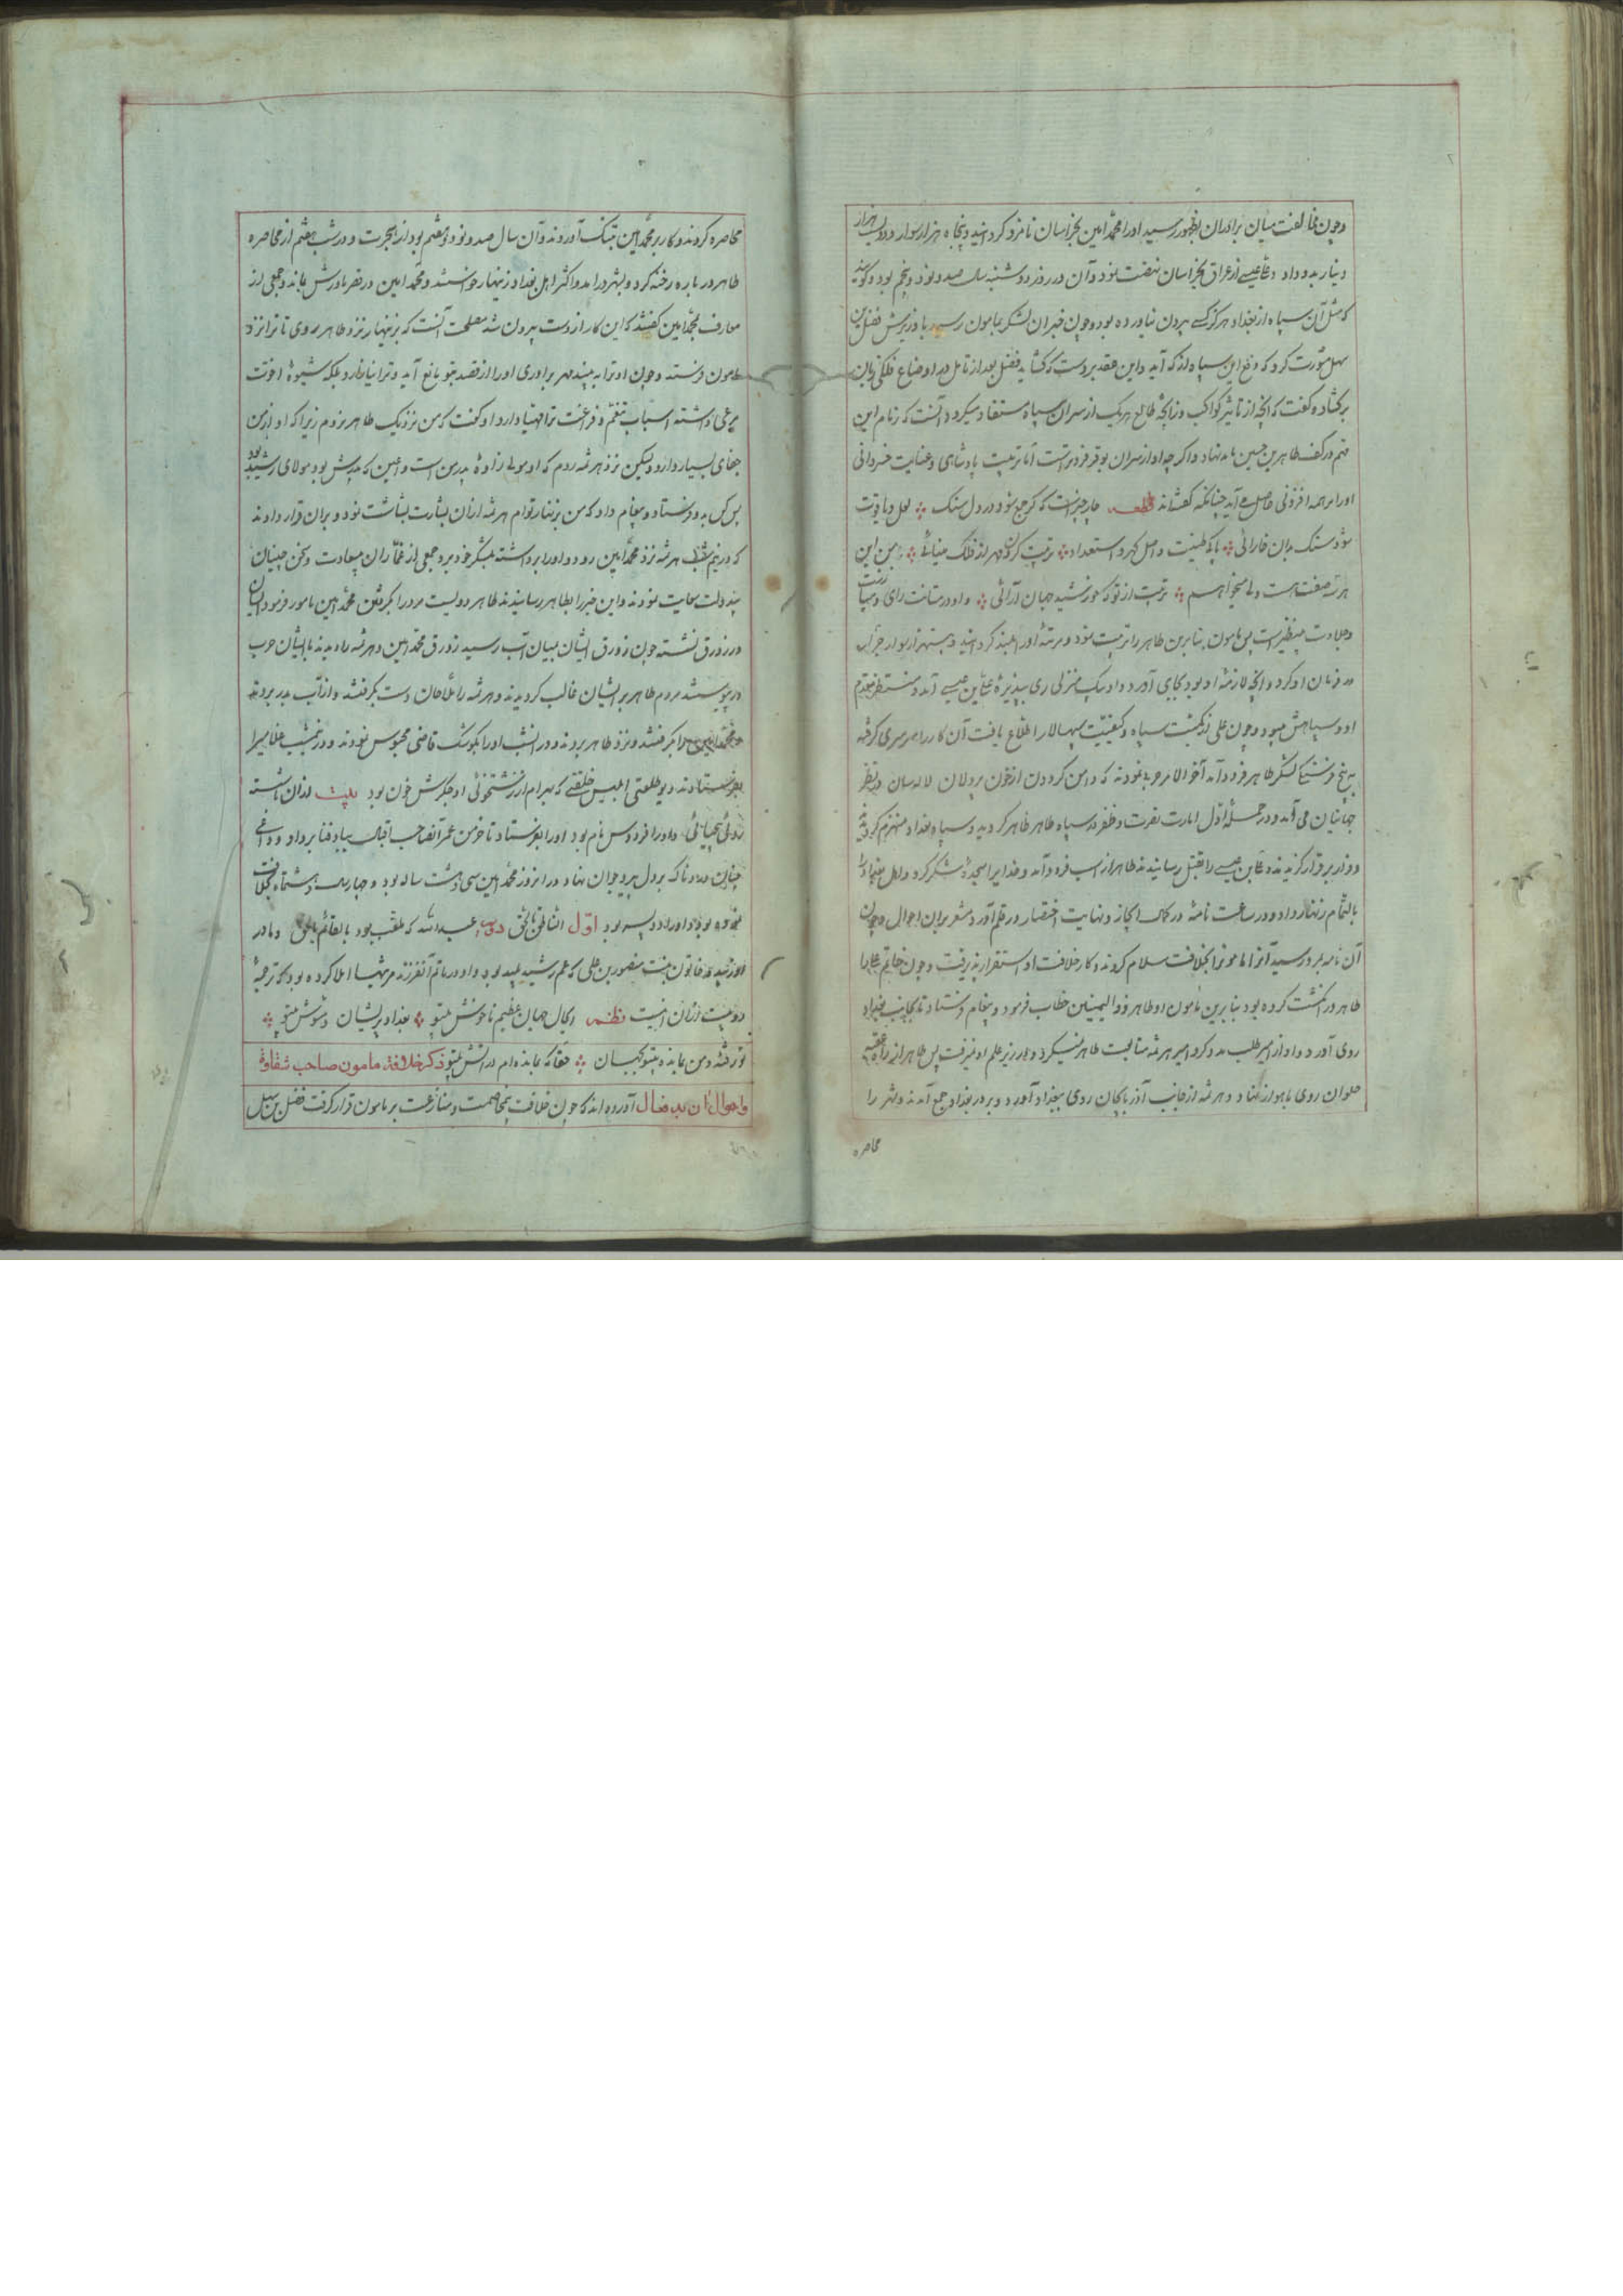 وچون مخالفت میان برادران بظهور رسید اورا محمد امین بخراسان نامزد کردانید وپنجاه هزار سوار ودویست هزار
دینار بدو داد وعلی عیسی از عراق بخراسان نهضت نمود وآن در روز دوشنبه سال صد ونود وپنجم بود وکویند
که مثل آن سپاه از بغداد هرکز کسی بیرون نیاورده بود وچون خبر آن لشکر بمامون رسید با وزیرش فضل بن
سهل مشورت کرد که دفع این سپاه از که آید واین عقد بر دست که کشاید فضل بعد از تامل در اوضاع فلکی زبان
برکشاده کفت که آنچه از تاثیر کواکب وزایجه طالع هریک از سران سپاه مستفاد میکردد آنست که زمام این
مهم در کف طاهر بن حسین باید نهاد واکرچه او از سران بوقر فروتر است اما تربیت پادشاهی وعنایت خسروانی
اورا مرتبه افزونی حاصل می آید چنانکه کفته‌اند قطعه چار چیزست که کر جمع شود در دل سنک لعل ویاقوت
شود سنک بدان خارائی پاکی طینت واصل کهر واستعداد تربیت کردن مهر از فلک مینائی در من این
هر سه صفت هست ولی میخواهم تربیت از تو که خورشید جهان آرائی واو در متانت رای وسیاست
وجلادت بینظیرست پس مامون بنابرین طاهر را تربیت نمود ومرتبه اورا بلند کردانید وبیست هزار سوار جرار
در فرمان او کرد وآنچه لازمه او بود بجای آورد واو بیک منزلی ری بپذیره علی بن عیسی آمد ومنتظر مقدم
او وسپاهش میبود وچون علی از کمیت سپاه وکیفیت سپهسالار اطلاع یافت آن کار را سرسری کرفته
به پنج فرسنکی لشکر طاهر فرود آمد آخر الامر حربی نمودند که دامن کردون از خون پردلان لاله سان در نظر
جهانیان می آمد ودر حمله اول امارت نصرت وظفر در سپاه طاهر ظاهر کردید وسپاه بغداد منهزم کردیده
ودر از برقرار کزیدند وعلی بن عیسی را بقتل رسانیدند طاهر از اسپ فرود آمد وخدایرا سجده شکر کرد واهل بغداد را
بالتمام زنهار داد ودر ساعت نامه در کمال ایجاز ونهایت اختصار در قلم آورد مشعر بران احوال وچون
آن نامه بمرو رسید آنرا مامونرا بخلافت سلام کردند وکار خلافت او استقرار پذیرفت وچون خاتم علی را
طاهر در انکشت کرده بود بنابرین مامون او طاهر ذو الیمینین خطاب فرمود وپیغام فرستاد تا بجانب بغداد
روی آورد واو از امیر طلب مدد کرد امیر هرثمه متابعت طاهر نمیکرد ودر زیر علم او نمیرفت پس طاهر از راه عقبه
حلوان روی باهواز نهاد وهرثمه از جانب آذربایجان روی ببغداد آورد وبر در بغداد جمع آمدند وشهر را
محاصره
محاصره کردند وکار بر محمد امین تنک آوردند وآن سال صد ونود وهشتم بود از هجرت ودر شب هفتم از محاصره
طاهر در باره رخنه کرد وبشهر درامد واکثر اهل بغداد زنهار خواستند ومحمد امین در قصر مادرش بماند وجمعی از
معارف بمحمد امین کفتند که این کار از دست بیرون شد مصلحت آنست که بزنهار نزد طاهر روی تا ترا نزد
مامون فرستد وچون او ترا به بیند مهر برادری اورا از قصد بتو مانع آید وترا نیازارد وبلکه شیوه اخوت
مرعی داشته اسباب تنعم وفراغت ترا مهیا دارد او کفت که من نزدیک طاهر نروم زیرا که او از من
جفای بسیار دارد ولیکن نزد هرثمه روم که او مولی زاده پدر من است واعین که پدرش بود مولای رشید بود
پس کس بدو فرستاد وپیغام داد که من بزنهار توام هرثمه ازان بشارت بشاشت نمود وبران قرار دادند
که در نیم شب هرثمه نزد محمد امین رود واورا برداشته بلشکر خود برد جمعی از غمازان بسعادت وسخن چینان
بیدولت سعایت نمودند واین خبر را بطاهر رسانیدند طاهر دویست مرد را بکرفتن محمد امین مامور فرمود ایشان
در زورق نشسته چون زورق ایشان بمیان آب رسید زورق محمد امین وهرثمه را دیدند با ایشان حرب
در پیوستند مردم طاهر بر ایشان غالب کردیدند وهرثمه را ملاحان دست بکرفتند واز آب بدر بردند
ومحمد امین را بکرفتند ونزد طاهر بردند ودر انشب اورا بکوشک قاضی محبوس نمودند ودر نیمشب غلامیرا
بفرستادند دیو طلعتی ابلیس خلقتی که بهرام از زشتخوئی او جکرش خون بود بیت
روئی بیحیائی واورا فردوس نام بود اورا بفرستاد تا خرمن عمر آنصاحب اقبال بباد فنا برداد وداغی
چنان دردناک بر دل پیر وجوان نهاد ودر انروز محمد امین سی وهشت ساله بود وچهار سال وهشت ماه خلافت
نموده بود واورا دو پسر بود اول الناطق بالحق دوم عبدالله که ملقب بود بالقائم بالحق ومادر
او زبیده خاتون بنت منصور بن علی که عم رشید بود واو در ماتم آنفرزند مرثیها املا کرده بود که ترجمه
دو بیت ازان اینست نظم ایکان جهان عظیم ناخوش بیتو بغداد پریشان ومشوش بیتو
تو رفته ومن بمانده بیتو کریان حقا که بمانده‌ام در آتش بیتو ذکر خلافة مامون صاحب شقاوة
واحوال ان بد فعال آورده‌اند که چون خلافت بیمخاصمت ومنازعت بر مامون قرار کرفت فضل بن سهل